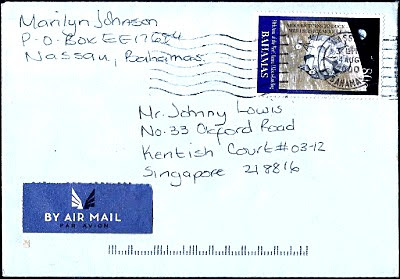 Marilyn Johnson
P.O. Box EE17684
Nassau, Bahamas.
BAHAMAS
AUG
BAHAMAS
Mr. Johnny Lowis
No. 33 Oxford Road
Kentish Court #03-12
Singapore 218816
BY AIR MAIL
PAR AVION